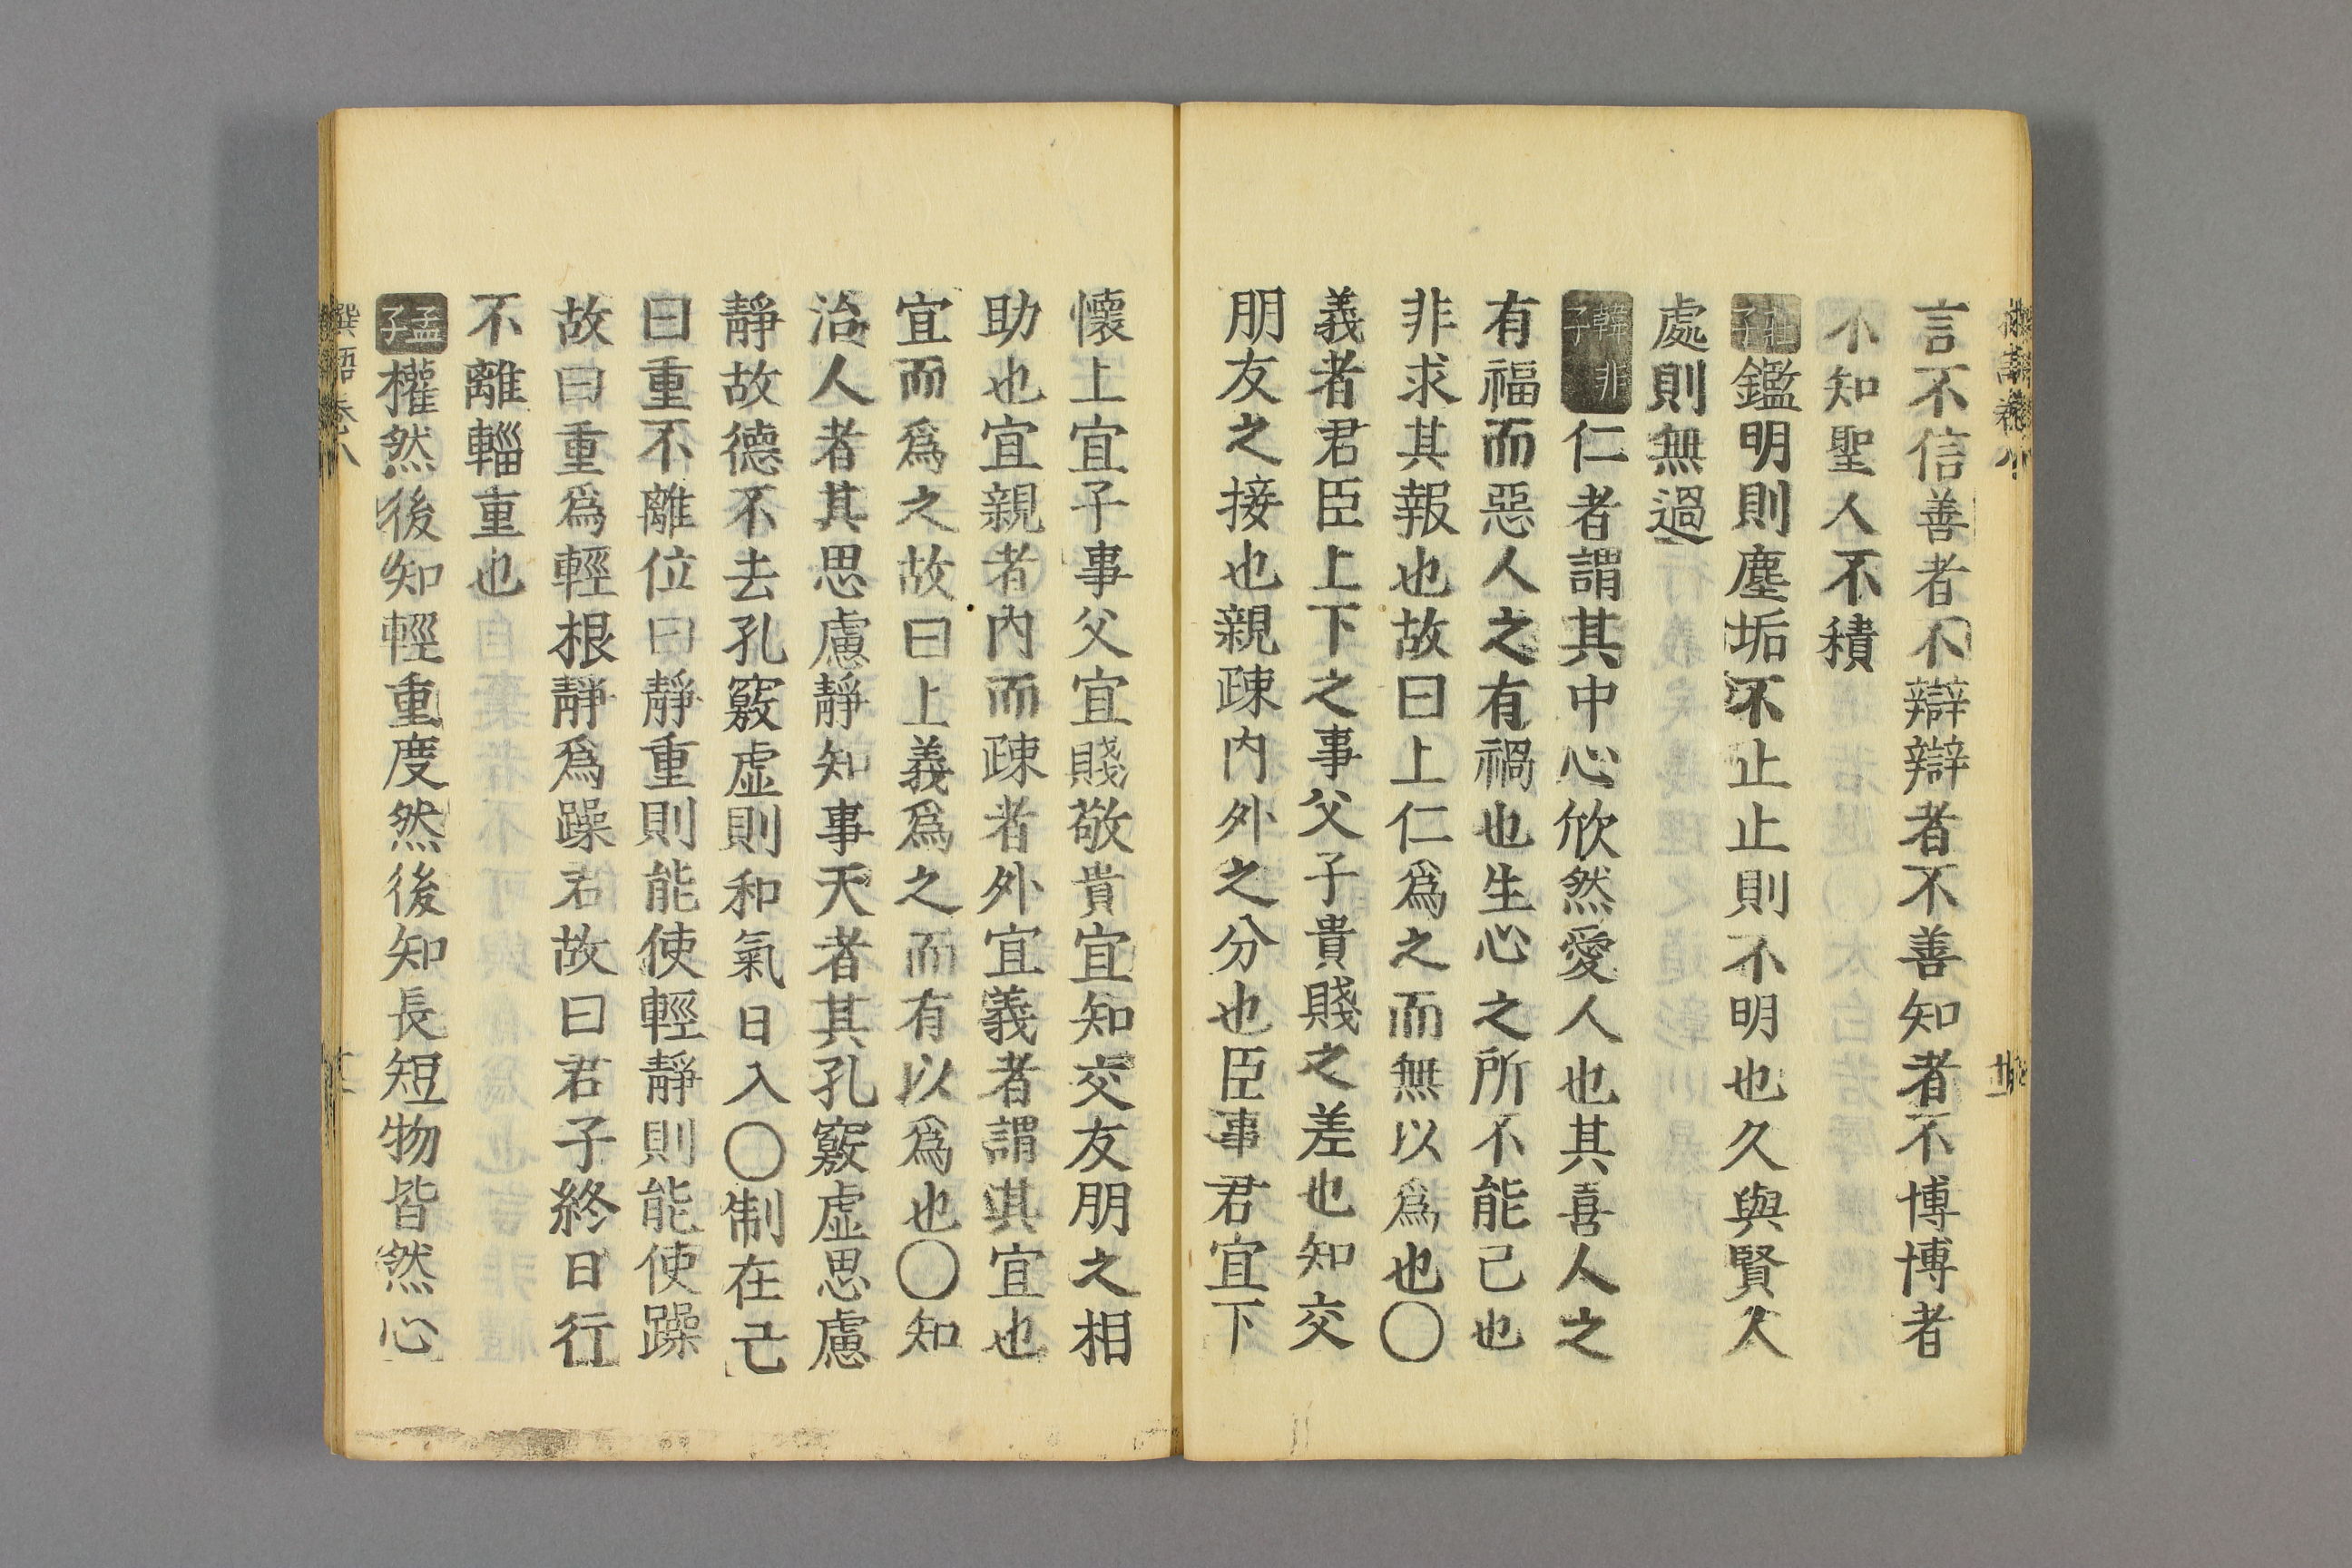 言不信善者不辯辯者不善知者不博博者
不知聖人不積
莊子鑑明則塵垢不止止則不明也久與賢人
處則無過
韓非子仁者謂其中心欣然愛人也其喜人之
有福而惡人之有禍也生心之所不能已也
非求其報也故曰上仁爲之而無以爲也〇
義者君臣上下之事父子貴賤之差也知交
朋友之接也親疎内外之分也臣事君宜下
懷上宜子事父宜賤敬貴宜知交友朋之相
助也宜親者内而疎者外宜義者謂其宜也
宜而爲之故曰上義爲之而有以爲也〇知
治人者其思慮靜知事天者其孔竅虛思慮
靜故德不去孔竅虛則和氣日入〇制在己
曰重不離位曰靜重則能使輕靜則能使躁
故曰重爲輕根靜爲躁君故曰君子終日行
不離輜重也
孟子權然後知輕重度然後知長短物皆然心
撰語卷八